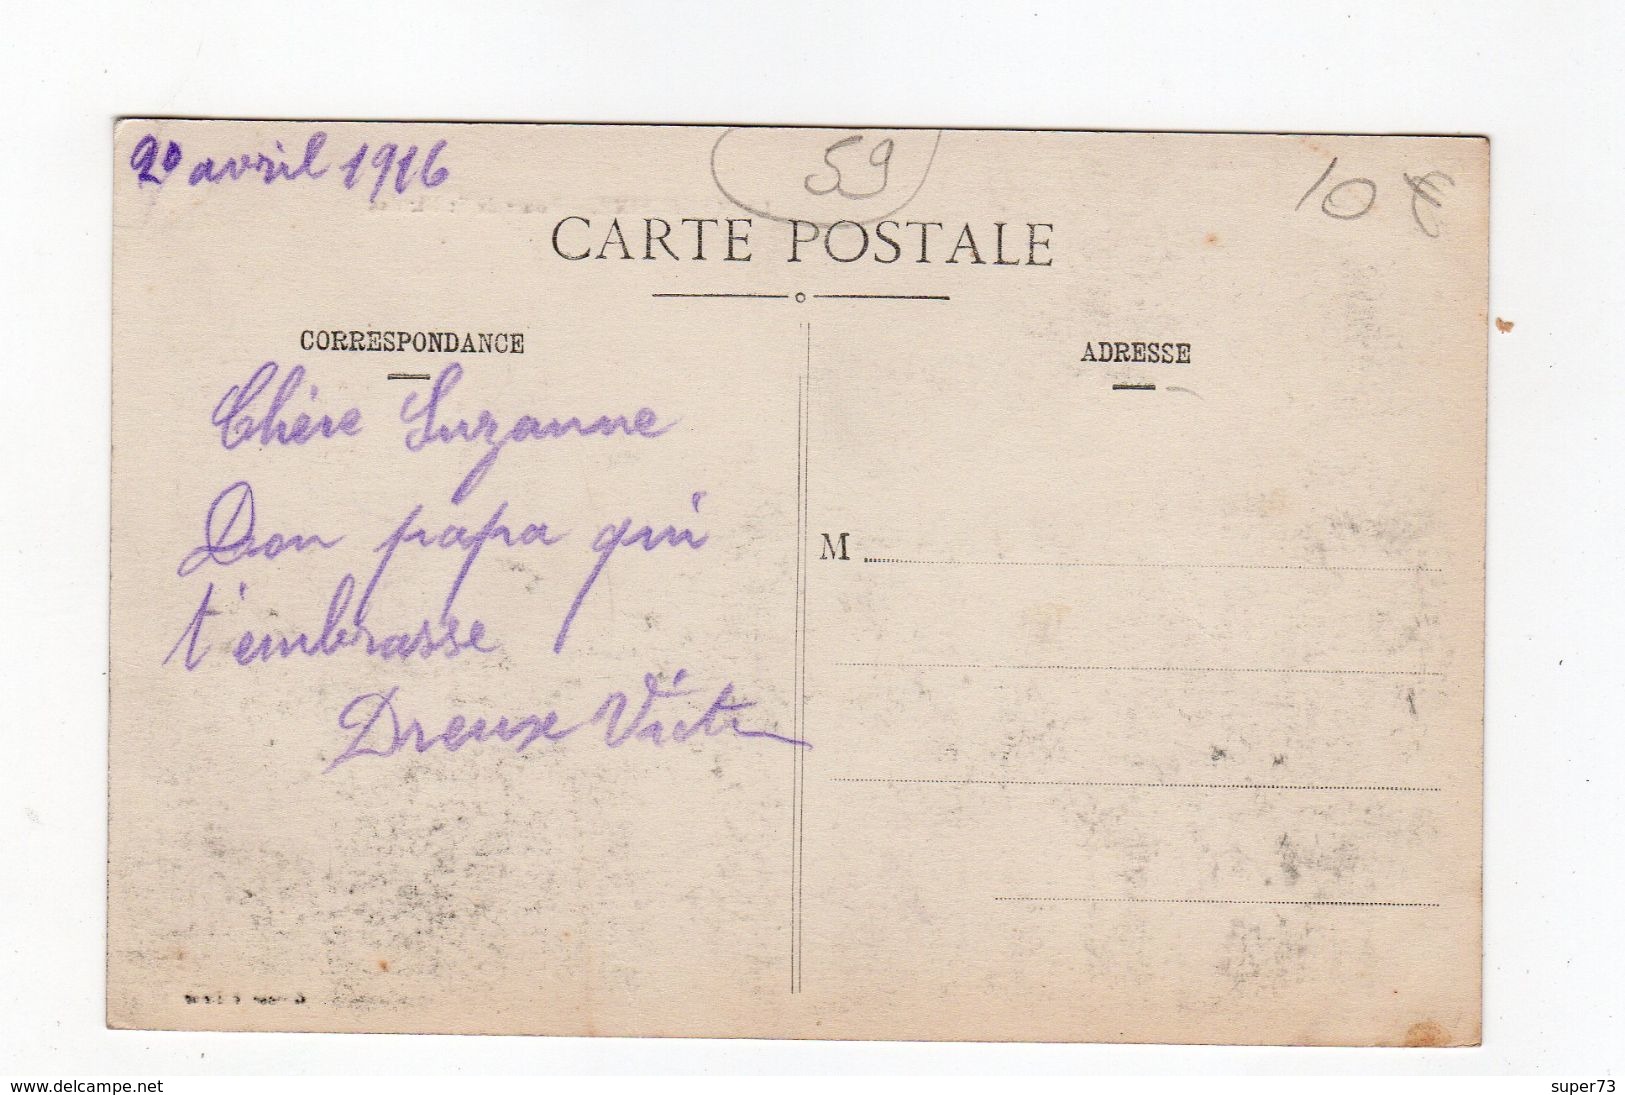 20 avril 1916
59
10 €
CARTE POSTALE
CORRESPONDANCE
ADRESSE
Chère Suzanne
Don papa qui
t'embrasse
Dreux Victor
M
www.delcampe.net
super73